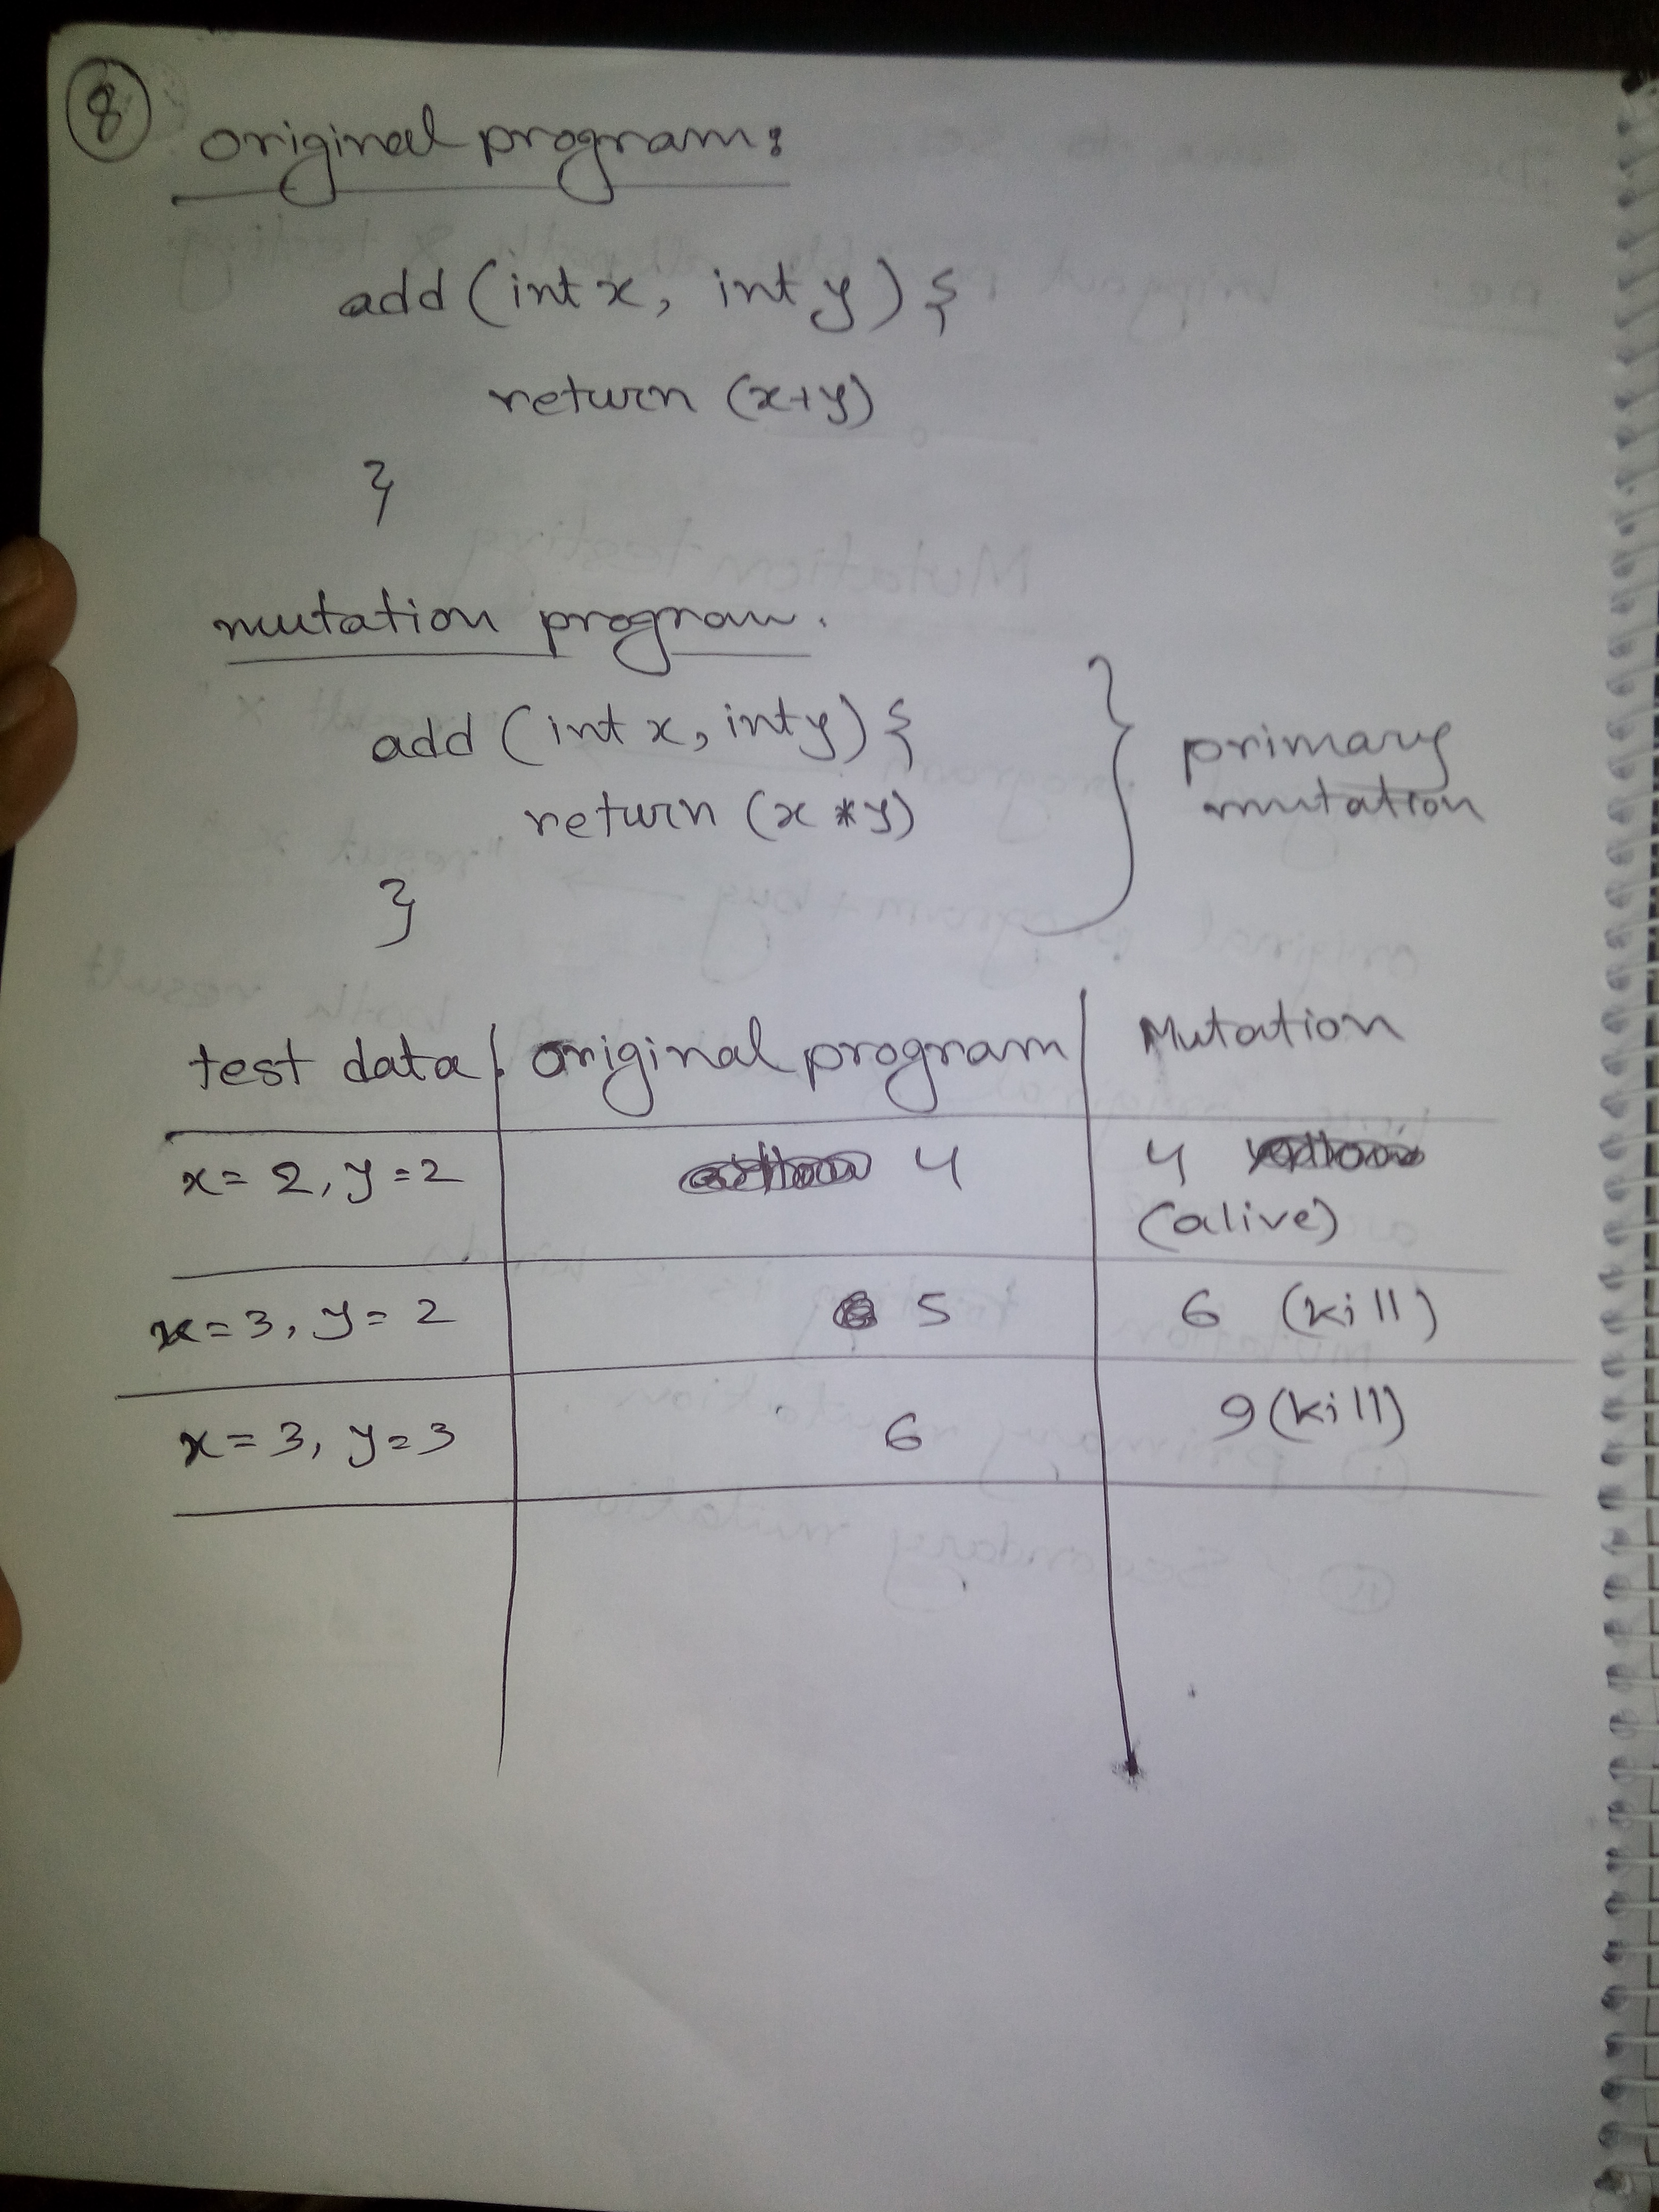 8
original program:
add (int x, int y) {
return (x+y)
}
mutation program.
add (int x, int y) {
return (x * y)
}
primary
mutation
test data original program Mutation
x = 2, y = 2 4 4
(alive)
x = 3, y = 2 5 6 (kill)
x = 3, y = 3 6 9 (kill)